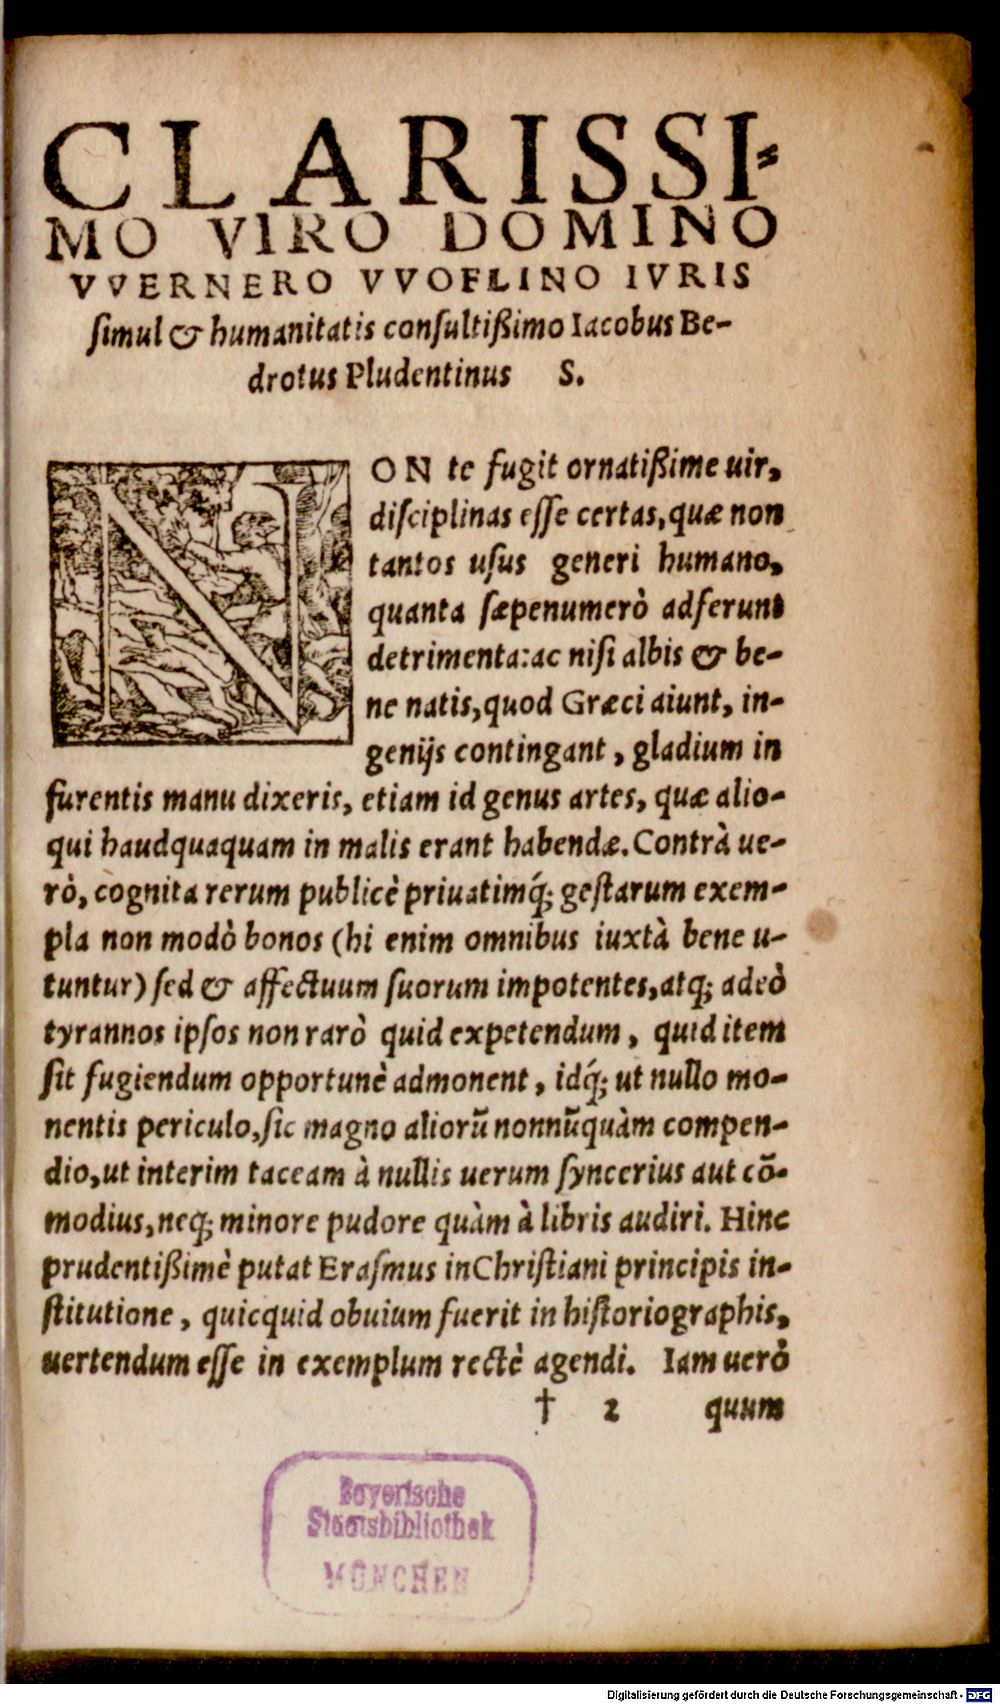 CLARISSI-
MO VIRO DOMINO
VVERNERO VVOFLINO IVRIS
simul & humanitatis consultißimo Iacobus Be-
drotus Pludentinus S.
NON te fugit ornatißime uir,
disciplinas esse certas, quæ non
tantos usus generi humano,
quanta sæpenumerò adferunt
detrimenta: ac nisi albis & be-
ne natis, quod Græci aiunt, in-
genijs contingant, gladium in
furentis manu dixeris, etiam id genus artes, quæ alio-
qui haudquaquam in malis erant habendæ. Contrà ue-
rò, cognita rerum publicè priuatimq́; gestarum exem-
pla non modò bonos (hi enim omnibus iuxtà bene u-
tuntur) sed & affectuum suorum impotentes, atq; adeò
tyrannos ipsos non rarò quid expetendum, quid item
sit fugiendum opportunè admonent, idq́; ut nullo mo-
nentis periculo, sic magno aliorũ nonnũquàm compen-
dio, ut interim taceam à nullis uerum syncerius aut cõ-
modius, neq; minore pudore quàm à libris audiri. Hinc
prudentißimè putat Erasmus in Christiani principis in-
stitutione, quicquid obuium fuerit in historiographis,
uertendum esse in exemplum rectè agendi. Iam uerò
† 2 quum
Bayerische
Staatsbibliothek
MÜNCHEN
Digitalisierung gefördert durch die Deutsche Forschungsgemeinschaft - DFG